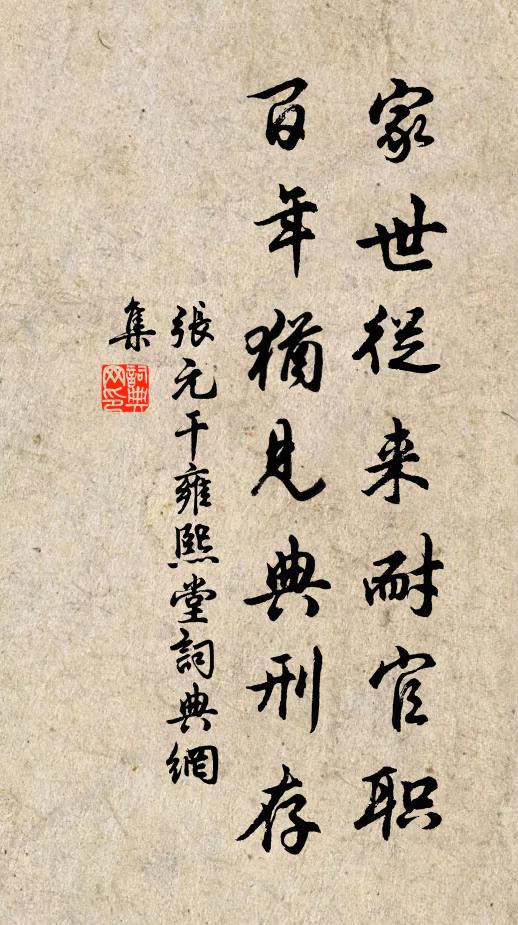 家世從来耐官职
百年猶見典刑存
張元干雍熙堂詞典網
集
詞典网印